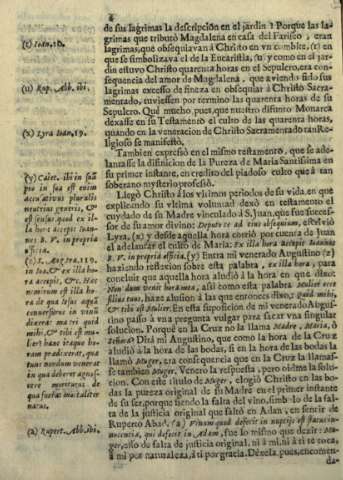 4
de sus lagrimas la descripción en el jardin? Porque las la-
grimas que tributó Magdalena en casa del Fariseo, eran
lagrimas, que obsequiavan à Christo en vn combite, (t) en que
se simbolizava el de la Eucaristia, (u) y como en el jar-
din estuvo Christo quarenta horas en el Sepulcro, era conse-
sequencia del amor de Magdalena, que aviendo sido sus
lagrimas excesso de fineza en obsequiar à Christo Sacra-
mentado, tuviessen por termino las quarenta horas de su
Sepulcro. Què mucho, pues, que nuestro difunto Monarca
dexasse en su Testamento el culto de las quarenta horas,
quando en la veneracion de Christo Sacramentado tan Re-
ligioso se manifestò.
Tambien expressò en el mismo testamento, que se ade-
lantasse la difinicion de la Pureza de Maria Santissima en
su primer instante, en credito del piadoso culto que à tan
soberano mysterio professò.
Llegò Christo à los vltimos periodos de su vida, en que
explicando su vltima voluntad dexò en testamento el
cuydado de su Madre vinculado à S. Juan, que fue successor
de su amor divino:
Lyra, (x) y desde aquella hora corriò por cuenta de Juan
el adelantar el culto de Maria: Ex illa hora accepit Ioannes
B. V. in propria officia. (y) Entra mi venerado Augustino (z)
haziendo reflexion sobre esta palabra, ex illa hora; para
concluir que aquella hora aludiò à la hora en que dixo:
Nondum venit hora mea, assi como esta palabra: Mulier ecce
filius tuus, haze alusion à las que entonces dixo, quid mihi,
& tibi est Mulier. En esta suposicion de mi venerado Augus-
tino passo à vna pregunta vulgar para sacar vna singular
solucion. Porquè en la Cruz no la llama Madre, Maria, ò
Señora? Dirà mi Augustino, que como la hora de la Cruz
aludiò à la hora de las bodas, si en la hora de las bodas la
llamò Muger, era consequencia que en la Cruz la llamas-
se tambien Muger. Venero la respuesta, pero oidme la solu-
cion. Con este titulo de Muger, elogiò Christo en las bo-
das la pureza original de su Madre en el primer instante
de su ser, porque siendo la falta del vino, simbolo de la fal-
ta de la justicia original que saltò en Adan, en sentir de
Ruperto Abad. (a)
fue lo mismo que dezir: Mu-
ger, esso de falta de justicia original, ni à mi, ni à ti te toca,
à mi por naturaleza, à ti por gracia. Dexela, pues, encomen-
da-
(t) Ioan. 10.
(u) Rup. Abb. ibi.
(x) Lyra Ioan. 19.
(y) Caiet. ibi in sua
pro in sua est enim
accusativus pluralis
neutrius generis,
est sensus quod ex il-
la hora accepit Ioan-
nes B. V. in propria
officia.
in Ioa. & ex illa ho-
ra accepit, &c. Hac
nimirum est illa ho-
ra de qua Iesus aquā
conversurus in vinū
dixerat: matri quid
mihi, & tibi est mu-
lier? hanc itaque ho-
ram prædixerat, quæ
tunc nondum venerat
in qua deberet agnos-
cere moriturus de
qua fuerat mortaliter
natus.
(a) Rupert. Abb. ibi.